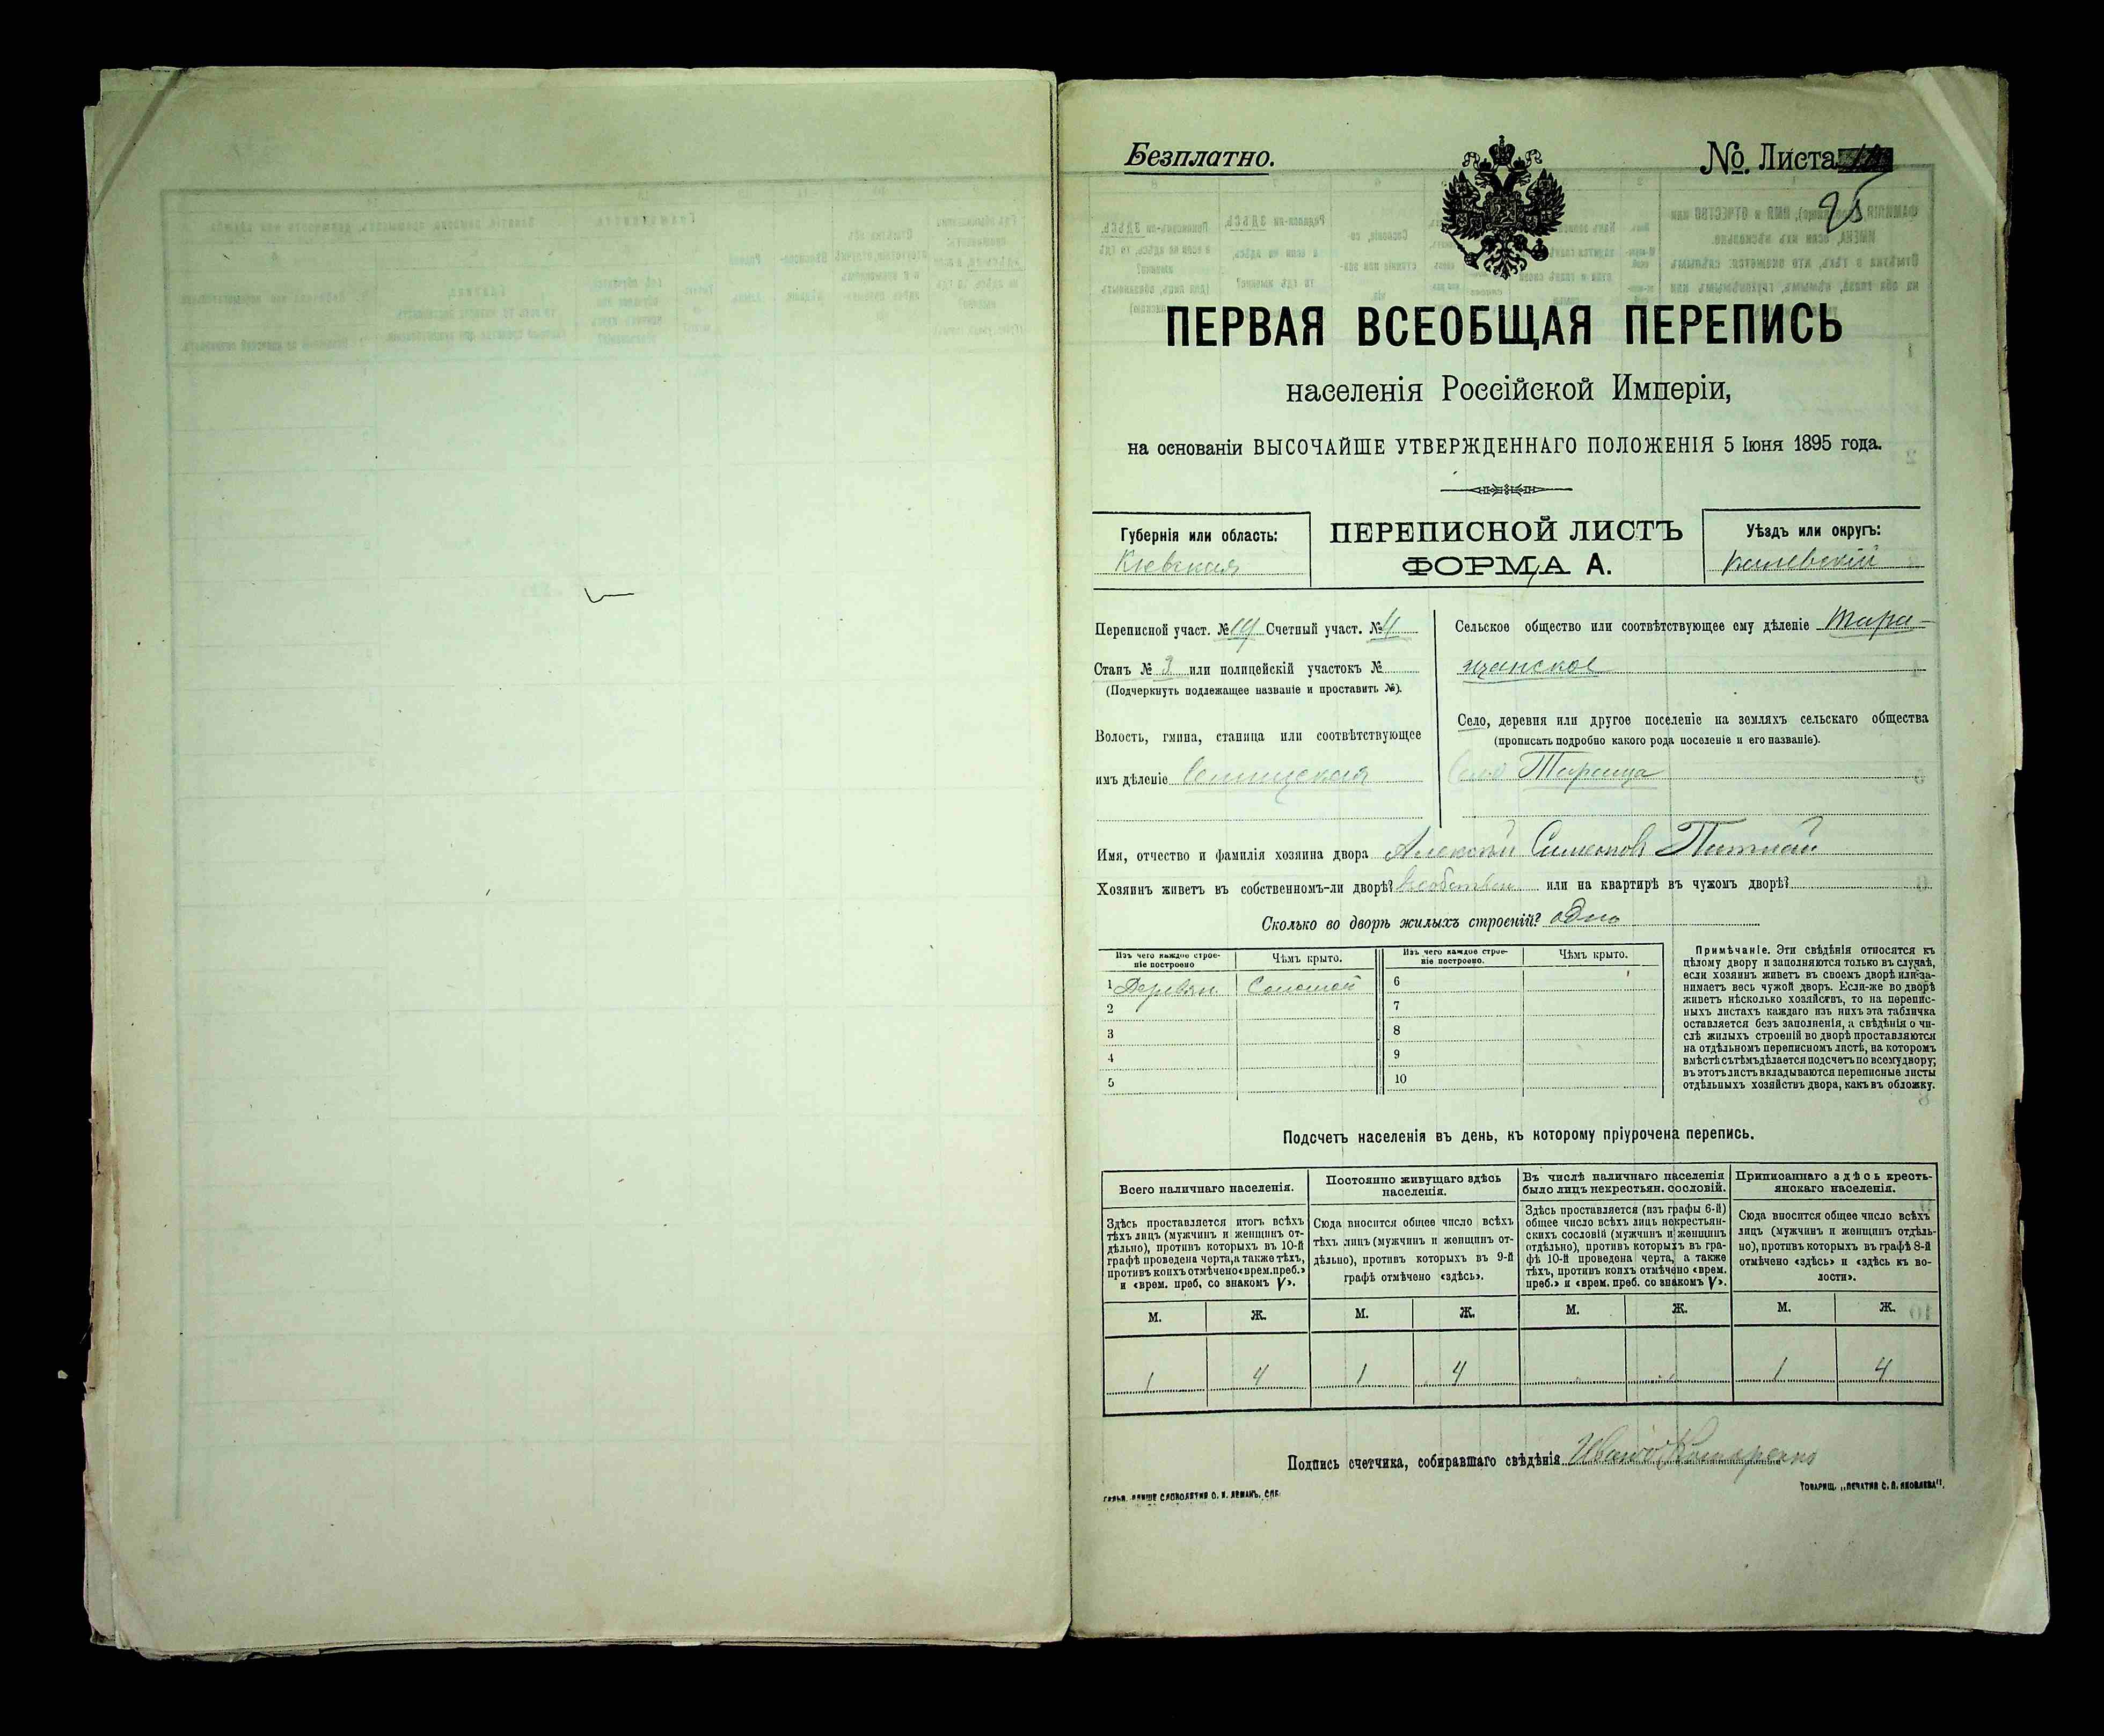 Безплатно.
№ Листа
25
ПЕРВАЯ ВСЕОБЩАЯ ПЕРЕПИСЬ
населенія Россійской Имперіи,
на основаніи ВЫСОЧАЙШЕ УТВЕРЖДЕННАГО ПОЛОЖЕНІЯ 5 Іюня 1895 года.
Губернія или область:
Кіевская
ПЕРЕПИСНОЙ ЛИСТЪ
ФОРМА А.
Уѣздъ или округъ:
Каневскій
Переписной участ. № 14 Счетный участ. № 4
Станъ № 3 или полицейскій участокъ №
(Подчеркнуть подлежащее названіе и проставить №).
Волость, гмина, станица или соотвѣтствующее
имъ дѣленіе
Сельское общество или соотвѣтствующее ему дѣленіе Тара-
щанское
Село, деревня или другое поселеніе на земляхъ сельскаго общества
(прописать подробно какого рода поселеніе и его названіе).
Село Тараща
Имя, отчество и фамилія хозяина двора Алексѣй Сименовъ
Хозяинъ живетъ въ собственномъ-ли дворѣ? или на квартирѣ въ чужомъ дворѣ?
Сколько во дворѣ жилыхъ строеній? одно
Изъ чего каждое строе-
ніе построено
Чѣмъ крыто.
Изъ чего каждое строе-
ніе построено.
Чѣмъ крыто.
1 Деревян. Соломой 6
2 7
3 8
4 9
5 10
Примѣчаніе. Эти свѣдѣнія относятся къ
цѣлому двору и заполняются только въ случаѣ,
если хозяинъ живетъ въ своемъ дворѣ или за-
нимаетъ весь чужой дворъ. Если-же во дворѣ
живетъ нѣсколько хозяйствъ, то на перепис-
ныхъ листахъ каждаго изъ нихъ эта табличка
оставляется безъ заполненія, а свѣдѣнія о чи-
слѣ жилыхъ строеній во дворѣ проставляются
на отдѣльномъ переписномъ листѣ, на которомъ
вмѣстѣ съ тѣмъ дѣлается подсчетъ по всему двору;
въ этотъ листъ вкладываются переписные листы
отдѣльныхъ хозяйствъ двора, какъ въ обложку.
Подсчетъ населенія въ день, къ которому пріурочена перепись.
Всего наличнаго населенія.
Здѣсь проставляется итогъ всѣхъ
тѣхъ лицъ (мужчинъ и женщинъ от-
дѣльно), противъ которыхъ въ 10-й
графѣ проведена черта, а также тѣхъ,
противъ коихъ отмѣчено «врем. преб.»
и «врем. преб. со знакомъ V».
Постоянно живущаго здѣсь
населенія.
Сюда вносится общее число всѣхъ
тѣхъ лицъ (мужчинъ и женщинъ от-
дѣльно), противъ которыхъ въ 9-й
графѣ отмѣчено «здѣсь».
Въ числѣ наличнаго населенія
было лицъ некрестьян. сословій.
Здѣсь проставляется (изъ графы 6-й)
общее число всѣхъ лицъ некрестьян-
скихъ сословій (мужчинъ и женщинъ
отдѣльно), противъ которыхъ въ гра-
фѣ 10-й проведена черта, а также
тѣхъ, противъ коихъ отмѣчено «врем.
преб.» и «врем. преб. со знакомъ V».
Приписаннаго здѣсь кресть-
янскаго населенія.
Сюда вносится общее число всѣхъ
лицъ (мужчинъ и женщинъ отдѣль-
но), противъ которыхъ въ графѣ 8-й
отмѣчено «здѣсь» и «здѣсь къ во-
лости».
М. Ж. М. Ж. М. Ж. М. Ж.
1 4 1 4 1 4
Подпись счетчика, собиравшаго свѣдѣнія Иванъ
СЛОВОЛИТНИ О. И. ЛЕМАНЪ, СПБ.
ТОВАРИЩ. „ПЕЧАТНЯ С. П. ЯКОВЛЕВА“.